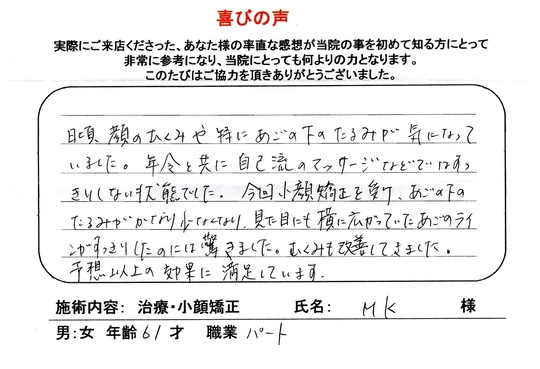 喜びの声
実際にご来店くださった、あなた様の率直な感想が当院の事を初めて知る方にとって
非常に参考になり、当院にとっても何よりの力となります。
このたびはご協力を頂きありがとうございました。
日頃、顔のむくみや特にあごの下のたるみが気になって
いました。年令と共に自己流のマッサージなどではすっ
きりしない状態でした。今回小顔矯正を受け、あごの下の
たるみがかなり少なくなり、見た目にも横に広がっていたあごのライ
ンがすっきりしたのには驚きました。むくみも改善してきました。
予想以上の効果に満足しています。
施術内容: 治療・小顔矯正 氏名: MK 様
男:女 年齢 61 才 職業 パート